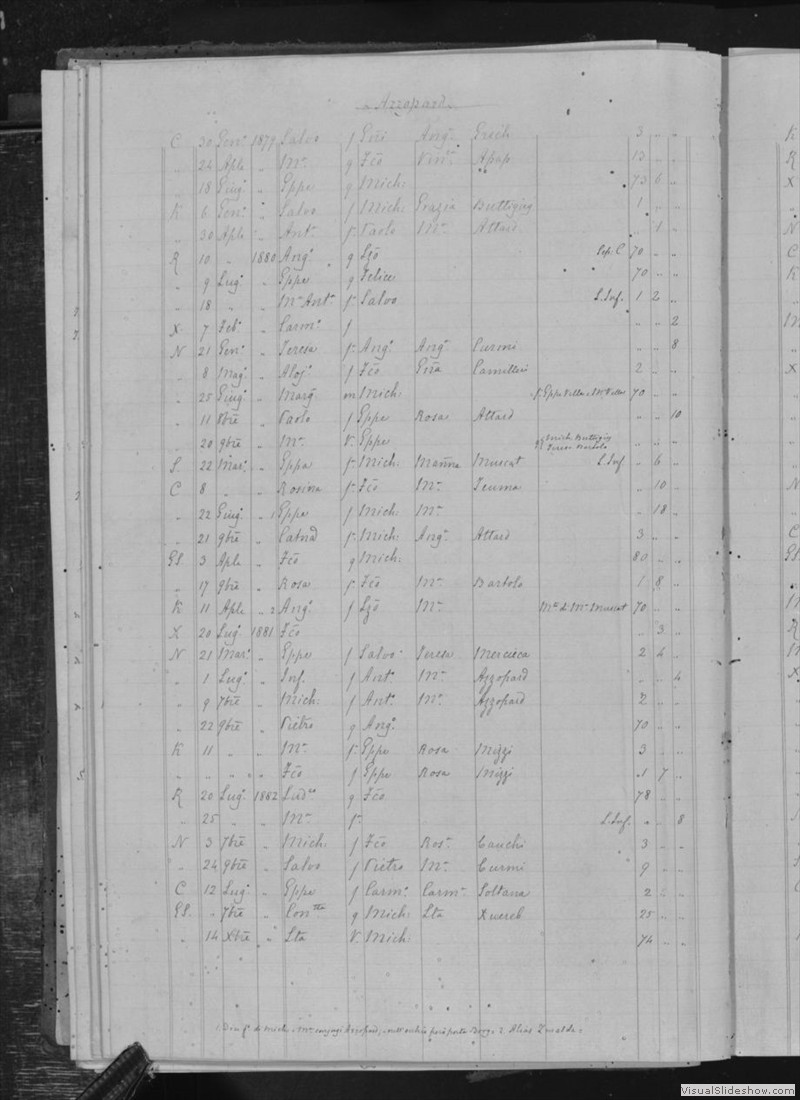 Azzopardi
C 30 Gen.o 1879 Salvo f Eñi Ang.a Grech 3 „ „
„ 24 Aple „ M.a g Fco Vin.a Apap 13 „ „
„ 18 Giug.o „ Eppe g Mich: 73 6 „
K 6 Gen.o „ Salvo f Mich: Grazia Buttigieg 1 „
„ 30 Aple „ Ant.o f Paolo M.a Attard „ 1 „
R 10 „ 1880 Ang.o g Lzo C 70 „ „
„ 9 Lug.o „ Eppa g Felice 70 „ „
„ 18 „ „ M.a Ant.a f Salvo S. Inf. 1 2 „
X 7 Feb.o „ Carm.o f „ „ 2
N 21 Gen.o „ Teresa f Ang.o Ang.a Curmi „ „ 8
„ 8 Mag.o „ Aloj.o f Fco Gña Camilleri 2 „ „
„ 25 Giug.o „ Marg.a m Mich: f. Eppe Vella e M.a Vella 70 „
„ 11 8bre „ Paolo f Eppe Rosa Attard „ „ 10
„ 20 9bre „ M.a V. Eppe Mich: Buttigieg „ „ „
S. 22 Mar.o „ Eppa f Mich: Marña Muscat S. Inf „ 6 „
C 8 „ „ Rosina f Fco M.a Teuma „ 10 „
„ 22 Giug.o „ 1 Eppa f Mich: M.a „ 18 „
„ 21 9bre „ f Mich: Ang.a Attard 3 „ „
GS. 3 Aple „ Fco g Mich: 80 „ „
„ 17 9bre „ Rosa f Fco M.a Bartolo 1 8 „
K 11 Aple „ 2 Ang.o f Lzo M.a M.o di M.a Muscat 70 „ „
X 20 Lug.o 1881 Fco „ 3 „
N 21 Mar.o „ Eppe f Salvo Teresa Mercieca 2 4 „
„ 1 Lug.o „ Inf. f Ant.o M.a Azzopard „ „ 4
„ 9 7bre „ Mich: f Ant.o M.a Azzopard 2 „ „
„ 22 9bre „ Pietro g Ang.o 70 „ „
K 11 „ „ M.a f Eppe Rosa Mizzi 3 „ „
„ „ „ „ Fco f Eppe Rosa Mizzi 1 7 „
R 20 Lug.o 1882 Lud.ca g Fco 78 „ „
„ 25 „ „ M.a f. S. Inf. „ „ 8
N 3 7bre „ Mich: f Fco Ros.a Cauchi 3 „ „
„ 24 9bre „ Salvo f Pietro M.a Curmi 9 „ „
C 12 Lug.o „ Eppa f Carm.o Carm.a Soltana 2 „ „
GS. „ 7bre „ Con.tta g Mich: Lta Xuereb 25 „ „
„ 14 Xbre „ Lta V. Mich: 74 „ „
VisualSlideshow.com